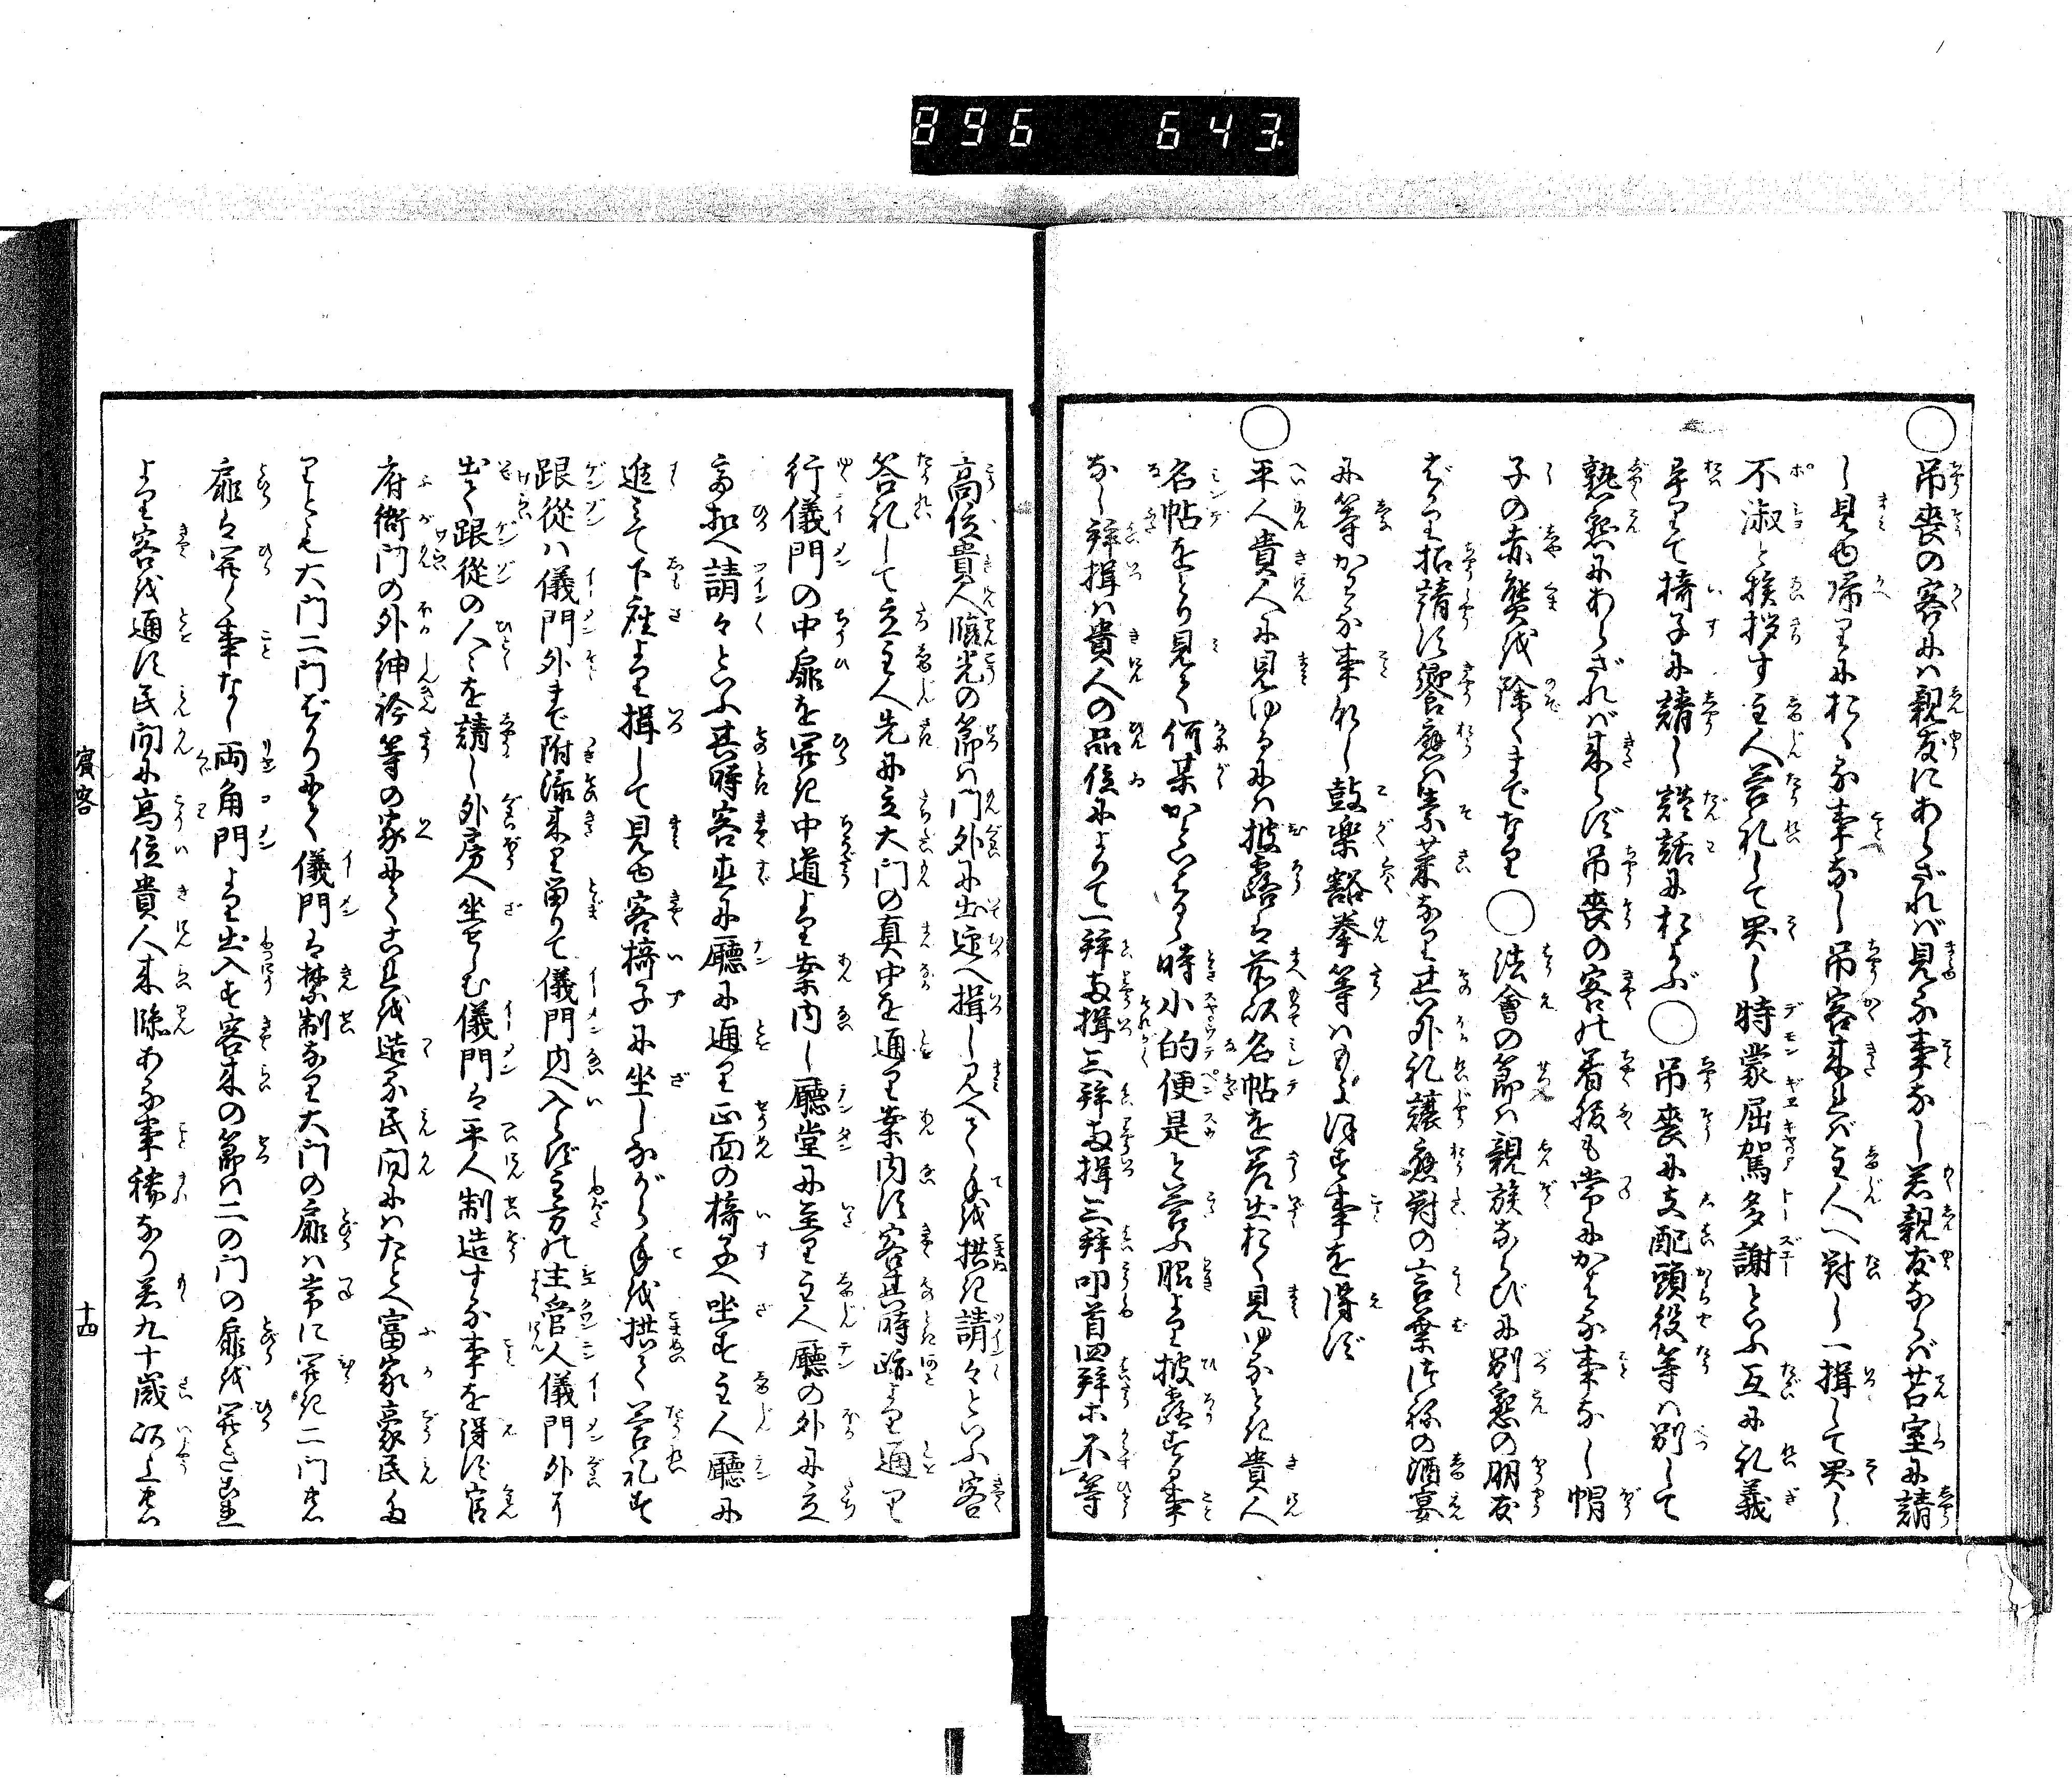 896 643.
○吊喪の客にハ親友にあらざれバ見る事なし若親友ならバ苫室に請
し見ゆ帰りにおくる事なし吊客来れバ主人へ對し一揖して哭し
不淑と挨拶す主人答礼して哭し特蒙屈駕多謝といふ互に礼義
畢りて椅子に請し談話におよぶ○吊喪に支配頭役等ハ別して
熟懇にあらざれバ来らず吊喪の客の着服も常にかはる事なし帽
子の赤纓を除くまでなり○法會の節ハ親族ならびに別懇の朋友
ばかり招請す饗應ハ素菜なり其外礼譲應對の言葉つねの酒宴
に等かはる事なし鼓楽豁拳等ハもよほす事を得ず
○平人貴人に見ゆるにハ披露は前以名帖を差出おく見ゆるとき貴人
名帖をとり見て何某かといはるゝ時小的便是と答ふ昵より披露する事
なし拜揖ハ貴人の品位によりて一拜両揖三拜両揖三拜叩首四拜ホ不等
高位貴人臨光の節ハ門外に出迎へ揖し見へて手を拱き請々といふ客
答礼して立主人先に立大门の真中を通り案内す客其時跡より通り
行儀門の中扉を開き中道より案内し廳堂に至り主人廳の外に立
請々といふ其時客直に廳に通り正面の椅子へ坐す主人廳に
進みて下座より揖して見ゆ客椅子に坐しながら手を拱て答礼す
跟従ハ儀門外まで附添来り留りて儀門内へ入らず主方の主官人儀門外に
出て跟從の人々を請し外房へ坐せしむ儀門は平人制造する事を得ず官
府衙门の外紳衿等の家にてこれを造る民间にハたとへ富家豪民た
りとも大门二门ばかりにて儀門は禁制なり大门の扉ハ常に開き二门の
扉は開く事なし両角門より出入す客来の節ハ二の门の扉を開きこれ
より客を通す民间に高位貴人来臨ある事稀なり若九十歳以上の
賓客
十四